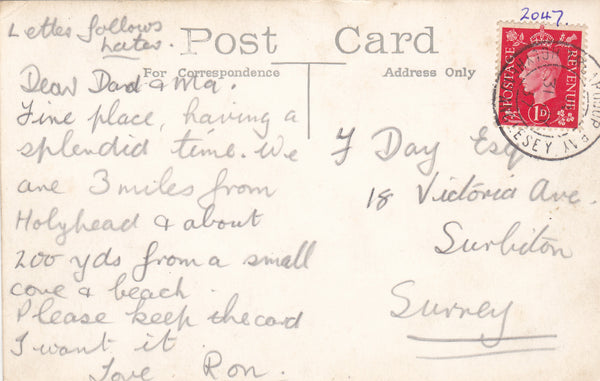 Letter follows
Later.
Post Card
For Correspondence
Address Only
2047.
POSTAGE
REVENUE
1D
Dear Dad & Ma.
Fine place, having a
splendid time. We
are 3 miles from
Holyhead & about
200 yds from a small
cove & beach.
Please keep the card
I want it.
Love. Ron.
F Day Esq
18 Victoria Ave.
Surbiton
Surrey